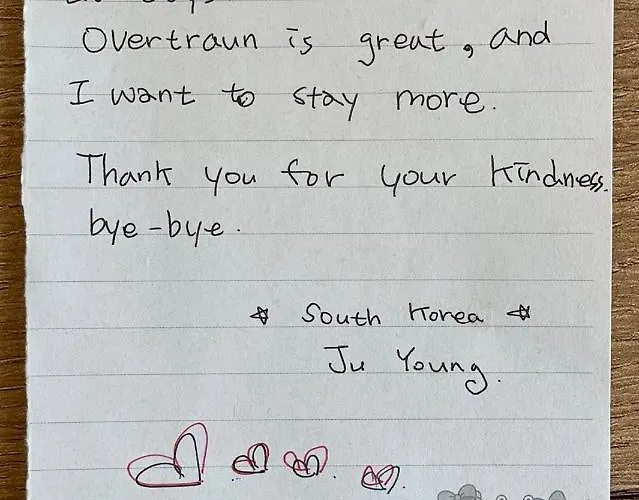 Overtraun is great, and
I want to stay more.
Thank you for your kindness.
bye-bye.
☆ South Korea ☆
Ju Young.